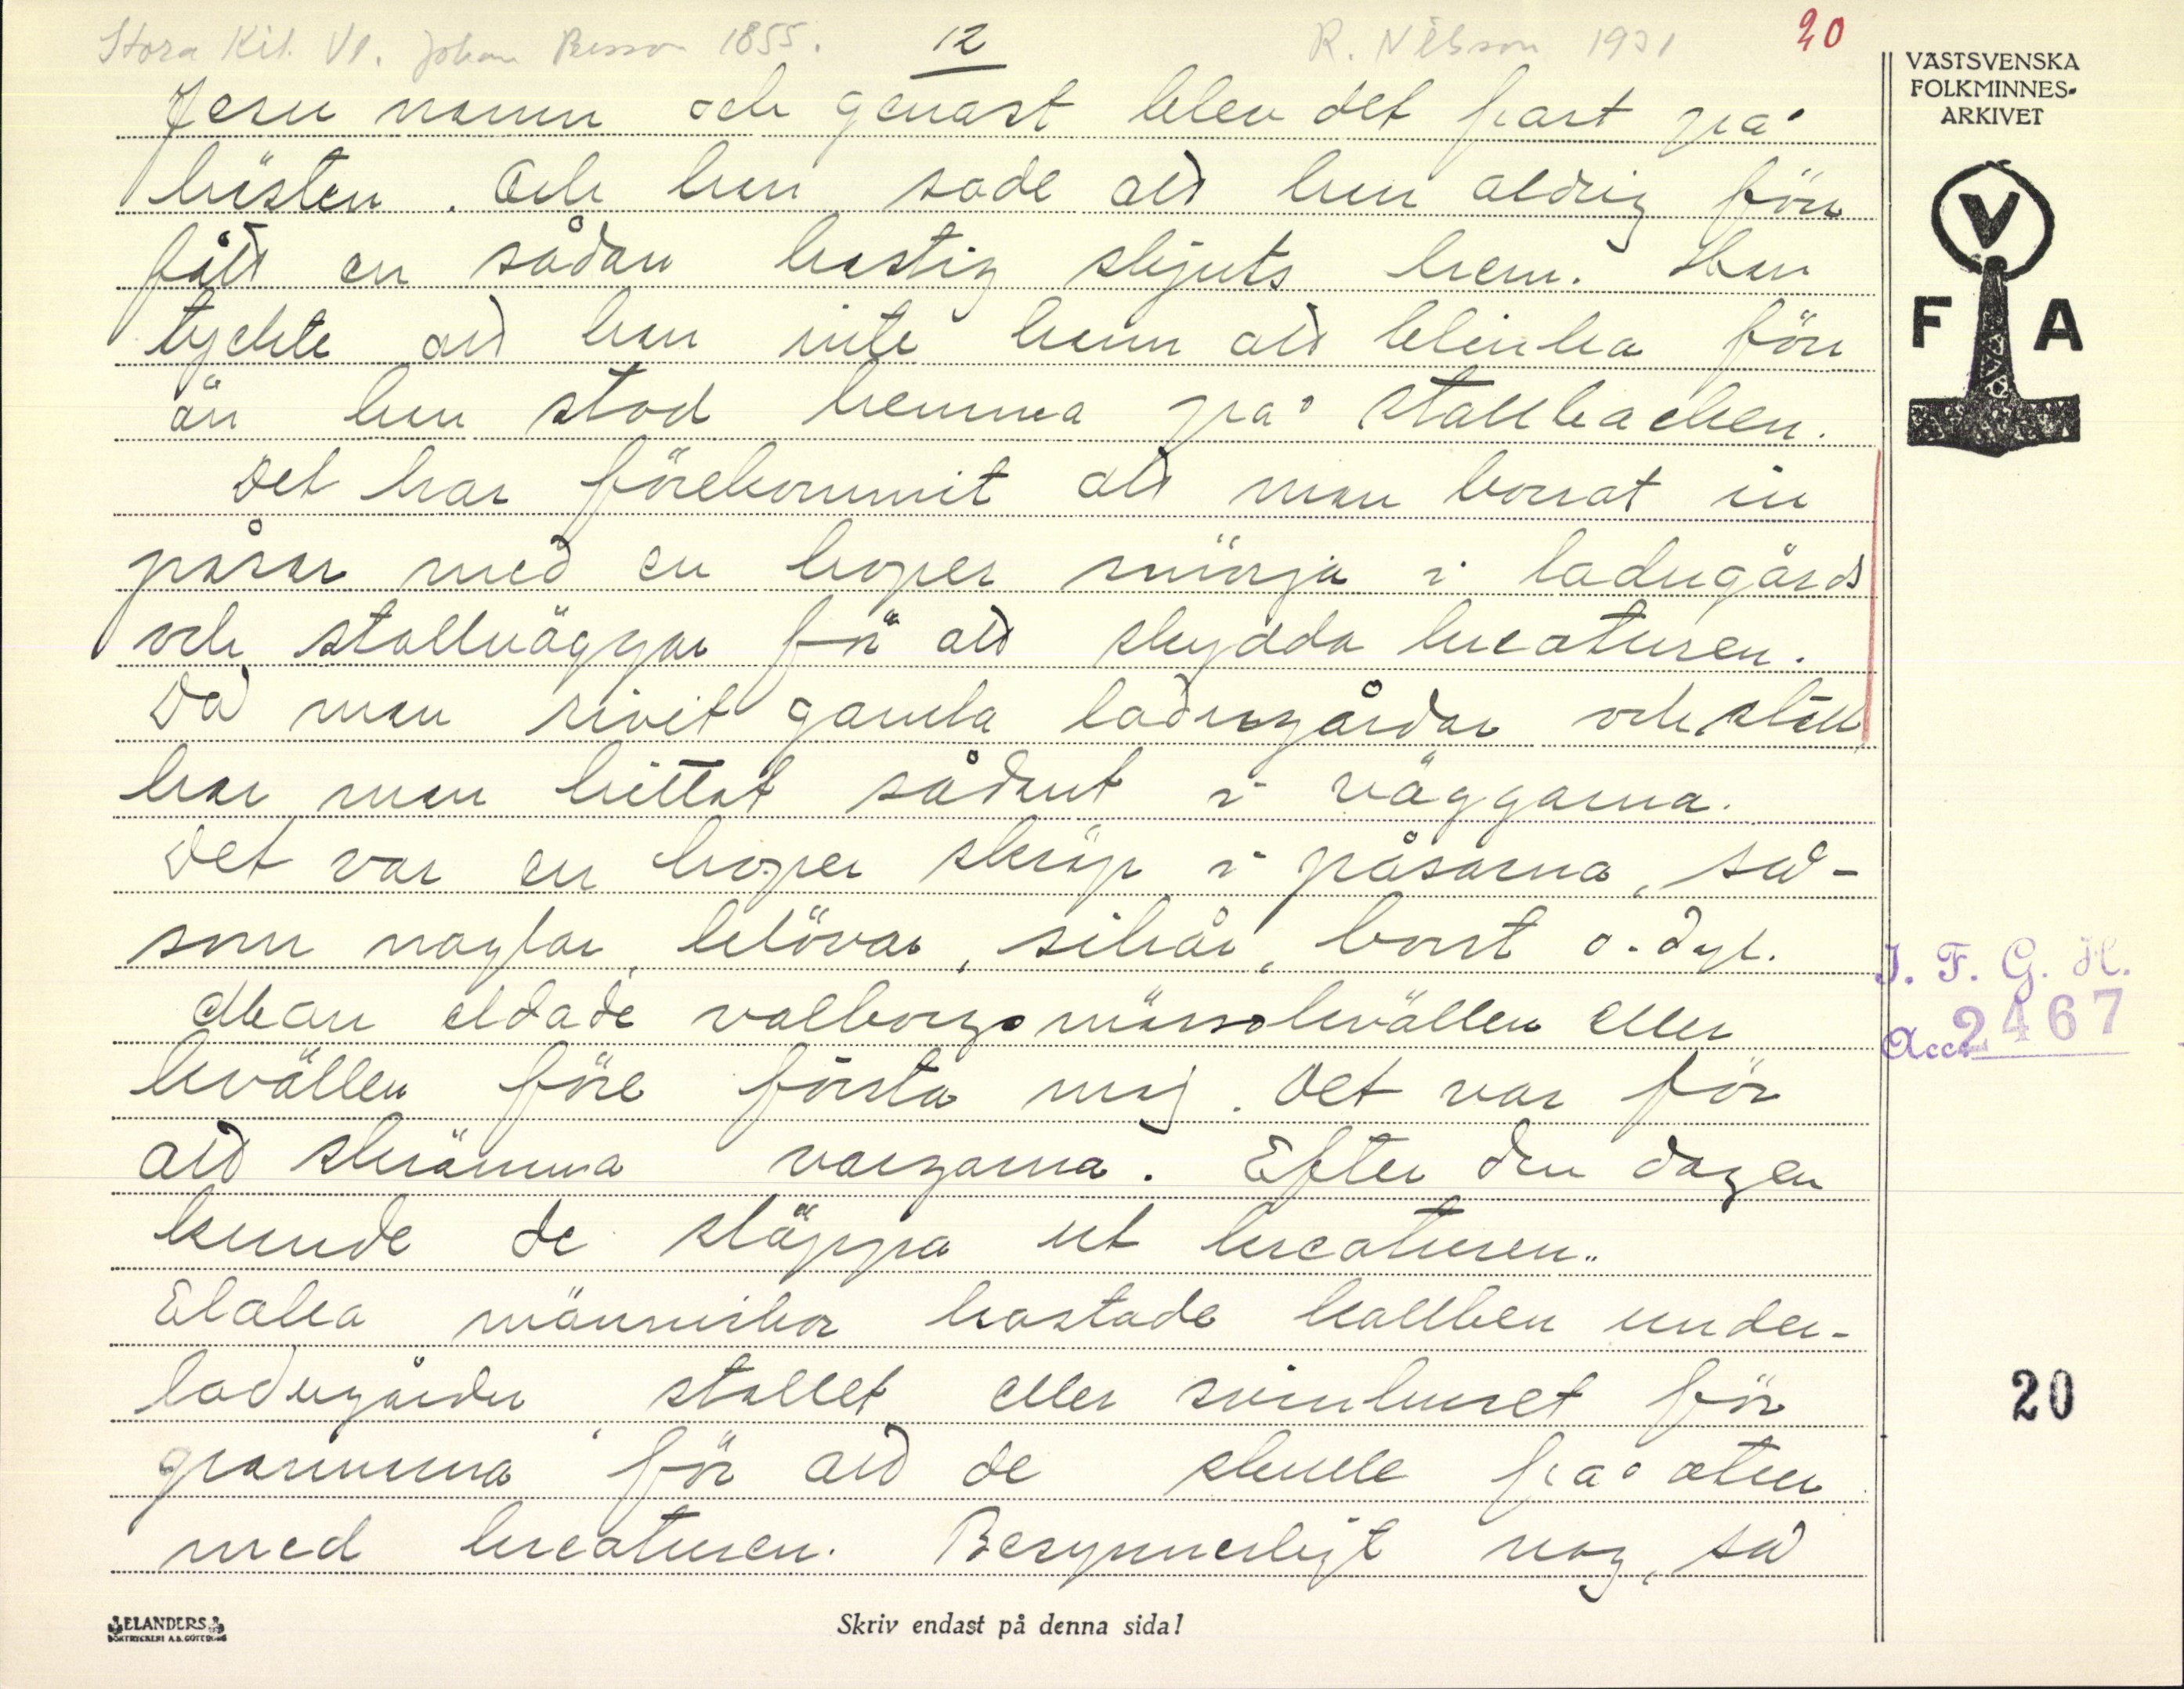 Stora Kil. Vl. Johan Persson 1855. 12 R. Nilsson 1931 20
VÄSTSVENSKA
FOLKMINNES-
ARKIVET
V
F A
Jesu namn och genast blev det fart på
hästen. Och hun sade att hun aldrig förr
fått en sådan hastig skjuts hem. Hun
tyckte att hun inte hann att blinka förr
än hun stod hemma på stallbacken.
Det har förekommit att man borrat in
påsar med en hoper smörja i ladugårds
och stallväggar för att skydda kreaturen.
Då man rivit gamla ladugårdar och stall
har man hittat sådant i väggarna.
Det var en hoper skräp i påsarna, så-
som naglar, klövar, sikår, borst o. dyl.
Man eldade valborgsmässokvällen eller
kvällen före första maj. Det var för
att skrämma vargarna. Efter den dagen
kunde de släppa ut kreaturen.
Elaka människor kastade kallben under
ladugården, stallet eller svinhuset för
grannarna för att de skulle få otur
med kreaturen. Besynnerligt nog, så
I. F. G. H.
Acc. 2467
20
ELANDERS
BOKTRYCKERI A.B. GÖTEBORG
Skriv endast på denna sida!